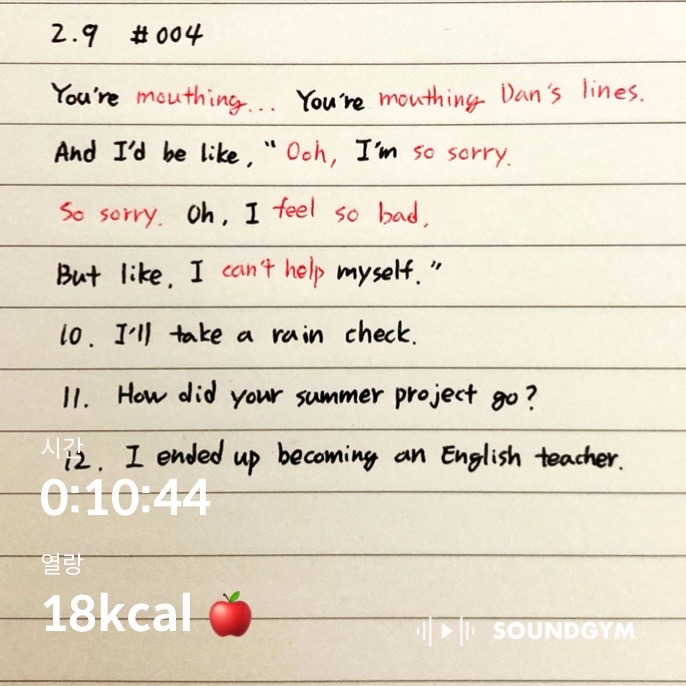 2.9 #004
You're mouthing... You're mouthing Dan's lines.
And I'd be like, "Ooh, I'm so sorry.
So sorry. Oh, I feel so bad.
But like, I can't help myself."
10. I'll take a rain check.
11. How did your summer project go?
12. I ended up becoming an English teacher.
시간
0:10:44
열량
18kcal 🍎
SOUNDGYM